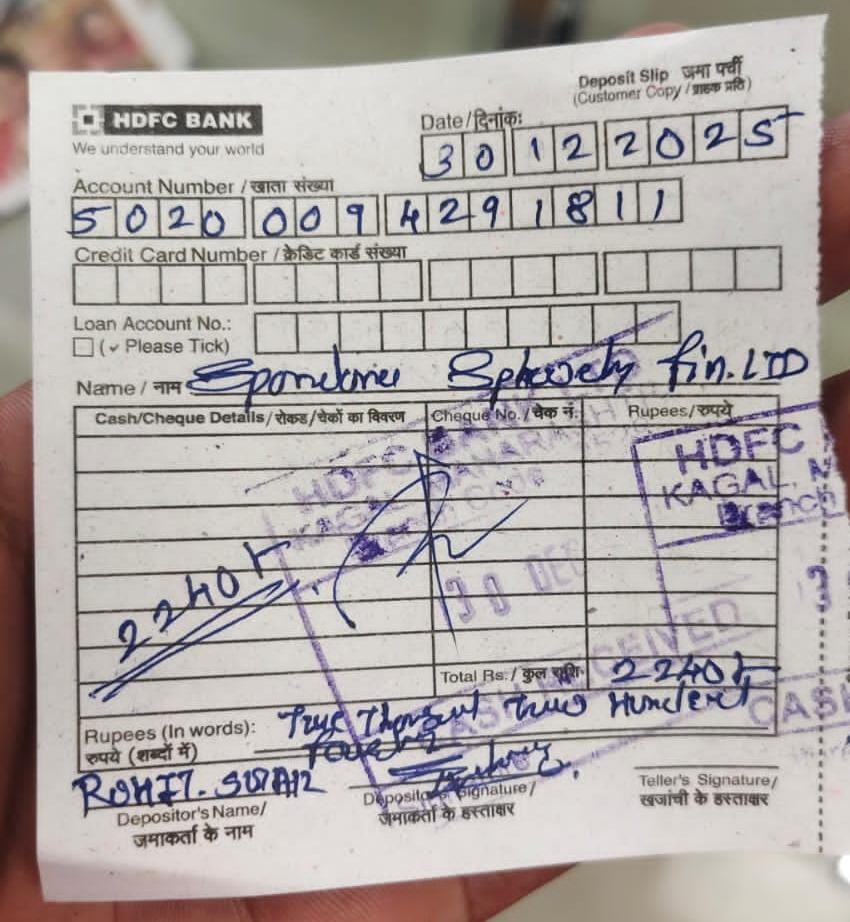 Deposit Slip जमा पर्ची
(Customer Copy / ग्राहक प्रति)
HDFC BANK
We understand your world
Date / दिनांक:
30 12 2025
Account Number / खाता संख्या
5020 009 4291811
Credit Card Number / क्रेडिट कार्ड संख्या
Loan Account No.:
(✓ Please Tick)
Name / नाम Fin. LTD
Cash/Cheque Details / रोकड/चेकों का विवरण Cheque No. / चेक नं: Rupees / रुपये
HDFC
KAGAL
Branch
HDFC
KAGAL, MAHARASHTRA
2240/-
30 DEC
RECEIVED
CASH
Total Rs. / कुल राशि 2240/-
Rupees (In words):
रुपये (शब्दों में)
ROHIT.
Depositor's Name/
जमाकर्ता के नाम
Depositor's Signature /
जमाकर्ता के हस्ताक्षर
Teller's Signature /
खजांची के हस्ताक्षर